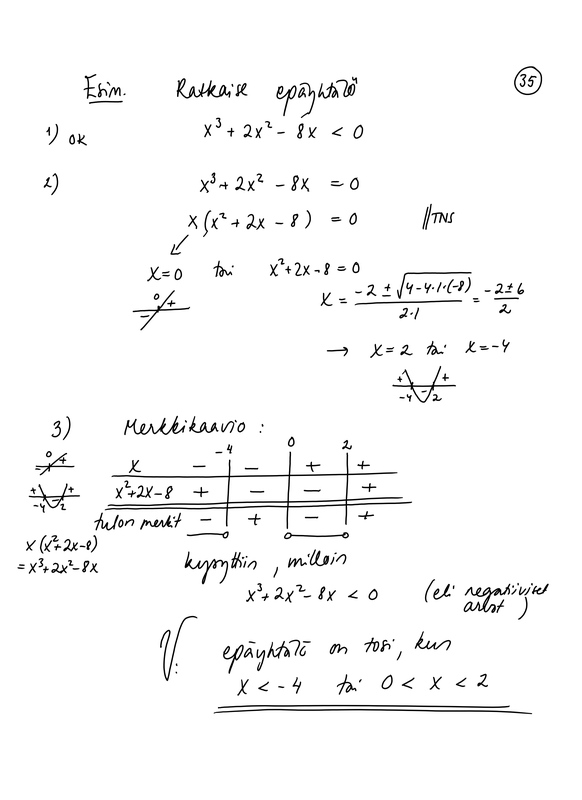 35
Esim. Ratkaise epäyhtälö
1) OK x³ + 2x² - 8x < 0
2) x³ + 2x² - 8x = 0
x(x² + 2x - 8) = 0 //TNS
x = 0 tai x² + 2x - 8 = 0
- 0 +
x = (-2 ± √(4 - 4·1·(-8)))/(2·1) = (-2 ± 6)/2
→ x = 2 tai x = -4
+ - +
-4 2
3) Merkkikaavio:
-4 0 2
x - - + +
x² + 2x - 8 + - - +
tulon merkit - + - +
- 0 +
+ - +
-4 2
x(x² + 2x - 8)
= x³ + 2x² - 8x
kysyttiin, milloin
x³ + 2x² - 8x < 0 (eli negatiiviset
arvot)
V: epäyhtälö on tosi, kun
x < -4 tai 0 < x < 2